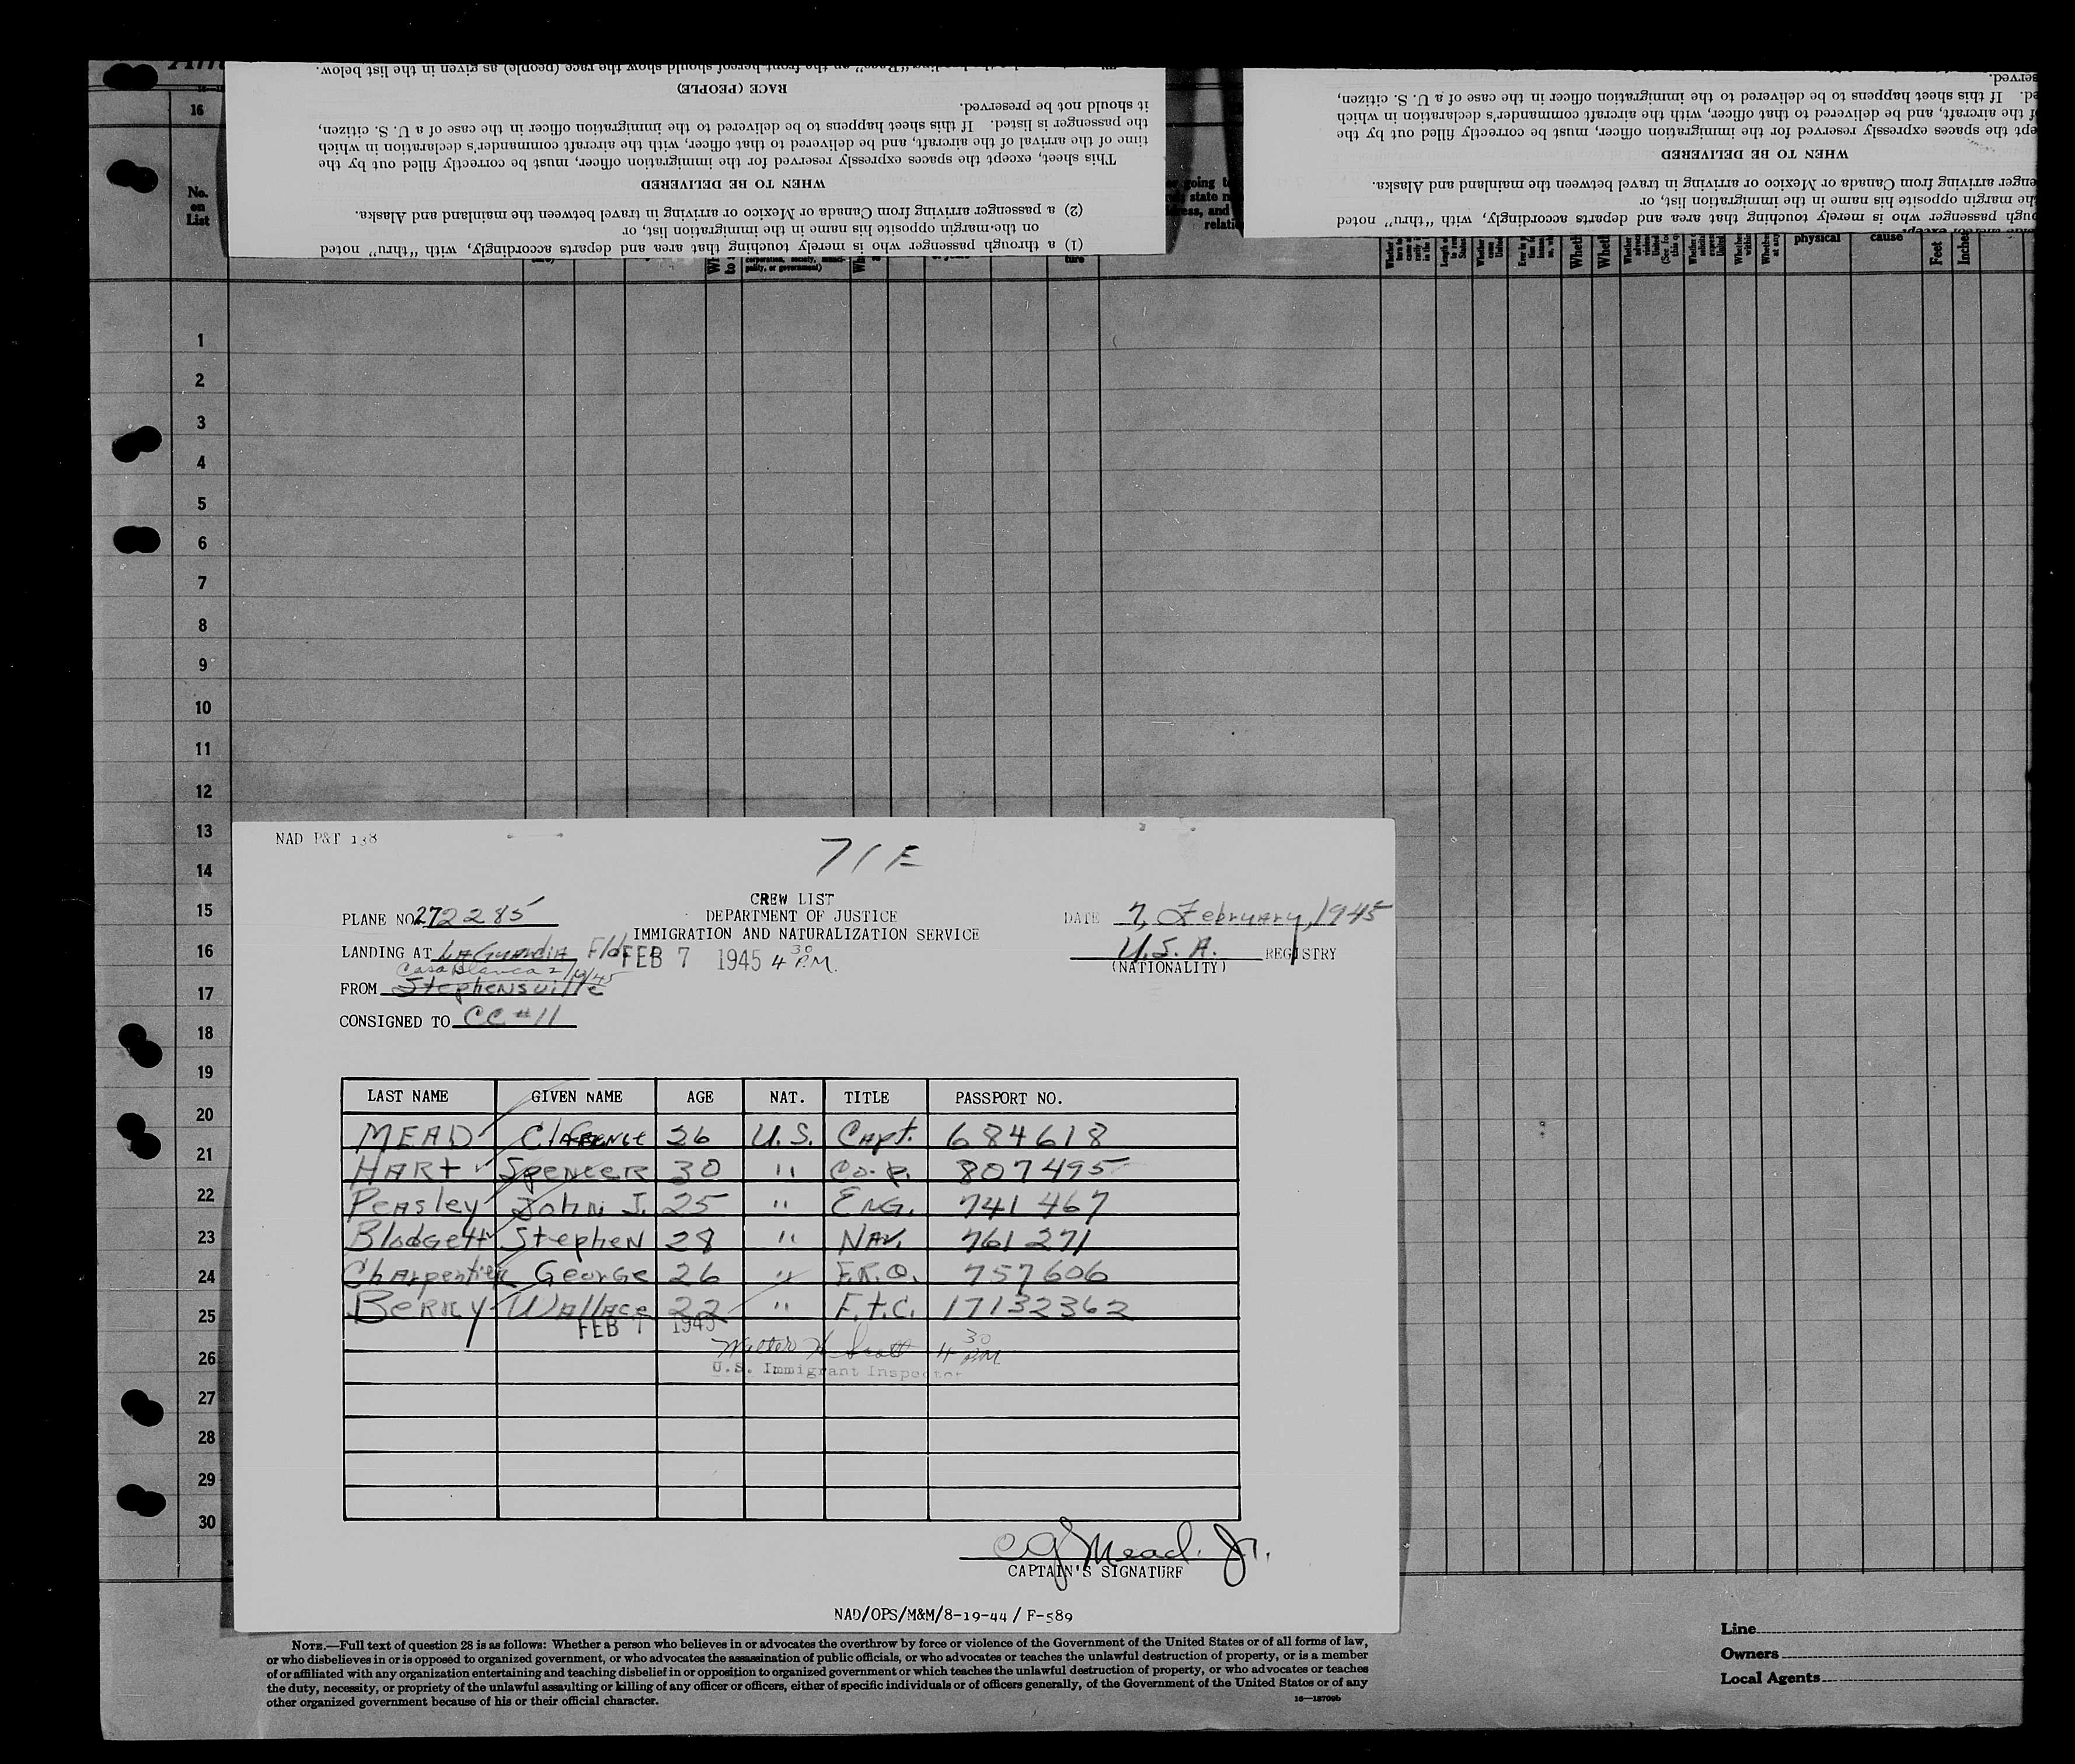 16
No.
on
List
"Race" on the front hereof should show the race (people) as given in the list below.
RACE (PEOPLE)
it should not be preserved.
the passenger is listed. If this sheet happens to be delivered to the immigration officer in the case of a U. S. citizen,
time of the arrival of the aircraft, and be delivered to that officer, with the aircraft commander's declaration in which
This sheet, except the spaces expressly reserved for the immigration officer, must be correctly filled out by the
WHEN TO BE DELIVERED
(2) a passenger arriving from Canada or Mexico or arriving in travel between the mainland and Alaska.
on the margin opposite his name in the immigration list, or
(1) a through passenger who is merely touching that area and departs accordingly, with "thru" noted
served.
ed. If this sheet happens to be delivered to the immigration officer in the case of a U. S. citizen,
of the aircraft, and be delivered to that officer, with the aircraft commander's declaration in which
ept the spaces expressly reserved for the immigration officer, must be correctly filled out by the
WHEN TO BE DELIVERED
enger arriving from Canada or Mexico or arriving in travel between the mainland and Alaska.
the margin opposite his name in the immigration list, or
ough passenger who is merely touching that area and departs accordingly, with "thru" noted
physical cause Feet Inches
1
2
3
4
5
6
7
8
9
10
11
12
13
14
15
16
17
18
19
20
21
22
23
24
25
26
27
28
29
30
NAD P&T 138
71E
CREW LIST
DEPARTMENT OF JUSTICE
IMMIGRATION AND NATURALIZATION SERVICE
PLANE NO. 272285
DATE 7, February, 1945
LANDING AT LaGuardia Fld FEB 7 1945 4 30 P.M.
U.S.A. REGISTRY
(NATIONALITY)
Casablanca 2/4/45
FROM Stephensville
CONSIGNED TO CC #11
LAST NAME GIVEN NAME AGE NAT. TITLE PASSPORT NO.
MEAD Clarence 26 U.S. Capt. 684618
HART Spencer 30 " Co-p. 807495
Peasley John J. 25 " ENG. 741467
Blodgett Stephen 28 " NAV. 761271
Charpentier George 26 " F.R.O. 757606
Berry Wallace 22 " F.t.C. 17132362
FEB 7 1945
Walter H Scott 4 30 PM
U.S. Immigrant Inspector
CG Mead. Jr.
CAPTAIN'S SIGNATURE
NAD/OPS/M&M/8-19-44/ F-589
NOTE.—Full text of question 28 is as follows: Whether a person who believes in or advocates the overthrow by force or violence of the Government of the United States or of all forms of law,
or who disbelieves in or is opposed to organized government, or who advocates the assassination of public officials, or who advocates or teaches the unlawful destruction of property, or is a member
of or affiliated with any organization entertaining and teaching disbelief in or opposition to organized government or which teaches the unlawful destruction of property, or who advocates or teaches
the duty, necessity, or propriety of the unlawful assaulting or killing of any officer or officers, either of specific individuals or of officers generally, of the Government of the United States or of any
other organized government because of his or their official character.
Line
Owners
Local Agents